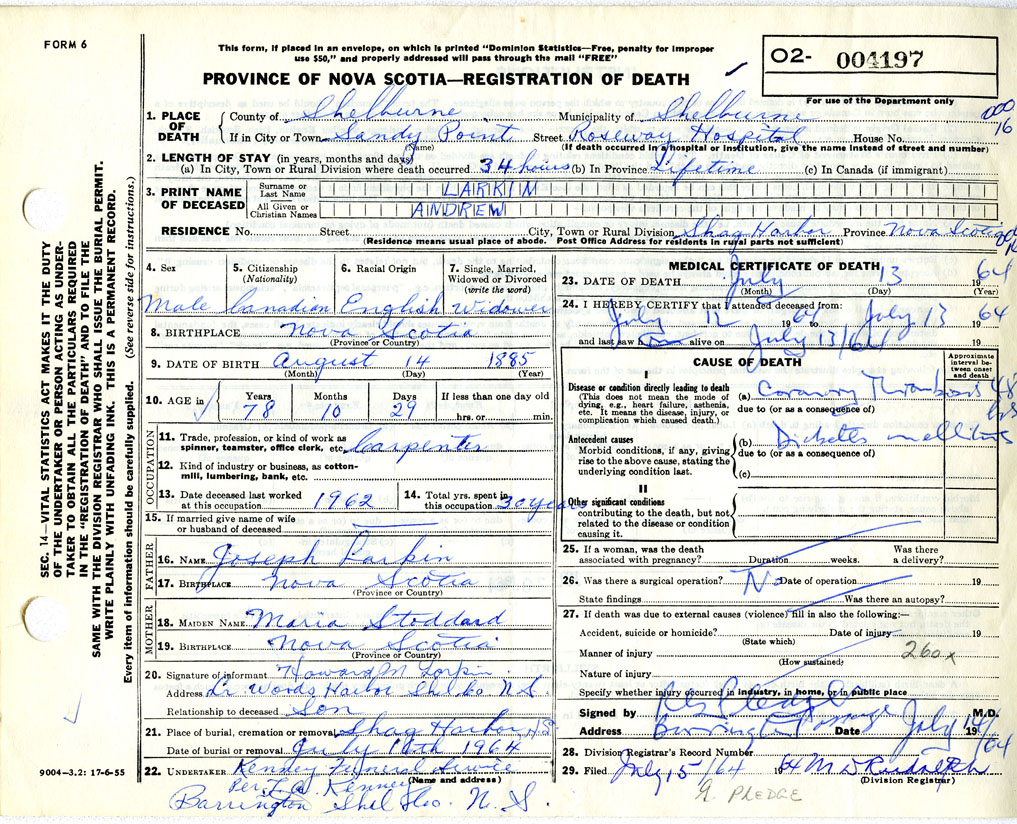 FORM 6
This form, if placed in an envelope, on which is printed "Dominion Statistics—Free, penalty for improper
use $50," and properly addressed will pass through the mail "FREE"
PROVINCE OF NOVA SCOTIA—REGISTRATION OF DEATH
02- 004197
For use of the Department only
000
16
1. PLACE OF DEATH
County of Shelburne Municipality of Shelburne
If in City or Town Sandy Point Street Roseway Hospital House No.
(Name) (If death occurred in a hospital or institution, give the name instead of street and number)
2. LENGTH OF STAY (in years, months and days)
(a) In City, Town or Rural Division where death occurred 34 hours (b) In Province Lifetime (c) In Canada (if immigrant)
3. PRINT NAME OF DECEASED
Surname or Last Name LARKIN
All Given or Christian Names ANDREW
RESIDENCE No. Street City, Town or Rural Division Shag Harbor Province Nova Scotia
(Residence means usual place of abode. Post Office Address for residents in rural parts not sufficient)
4. Sex 5. Citizenship (Nationality) 6. Racial Origin 7. Single, Married, Widowed or Divorced (write the word)
Male Canadian English Widower
8. BIRTHPLACE Nova Scotia
(Province or Country)
9. DATE OF BIRTH August 14 1885
(Month) (Day) (Year)
10. AGE in Years Months Days If less than one day old
78 10 29 hrs. or min.
OCCUPATION
11. Trade, profession, or kind of work as spinner, teamster, office clerk, etc. Carpenter
12. Kind of industry or business, as cotton-mill, lumbering, bank, etc.
13. Date deceased last worked at this occupation 1962 14. Total yrs. spent in this occupation 30 years
15. If married give name of wife or husband of deceased
FATHER
16. NAME Joseph Larkin
17. BIRTHPLACE Nova Scotia
(Province or Country)
MOTHER
18. MAIDEN NAME Maria Stoddard
19. BIRTHPLACE Nova Scotia
(Province or Country)
20. Signature of informant Howard M Larkin
Address Lr. Woods Harbor Shel Co N.S.
Relationship to deceased Son
21. Place of burial, cremation or removal Shag Harbor NS
Date of burial or removal July 1964
22. UNDERTAKER Kenney Funeral Service
(Name and address)
Per Kenney
Barrington Shel Co. N.S.
9004-3.2: 17-6-55
MEDICAL CERTIFICATE OF DEATH
23. DATE OF DEATH July 13 1964
(Month) (Day) (Year)
24. I HEREBY CERTIFY that I attended deceased from:
July 12 1964 to July 13 1964
and last saw alive on July 13/64 19
CAUSE OF DEATH
Approximate interval between onset and death
I
Disease or condition directly leading to death
(This does not mean the mode of dying, e.g., heart failure, asthenia, etc. It means the disease, injury, or complication which caused death.)
(a) Coronary Thrombosis 48 hrs
due to (or as a consequence of)
Antecedent causes
Morbid conditions, if any, giving rise to the above cause, stating the underlying condition last.
(b) Diabetes mellitus
due to (or as a consequence of)
(c)
II
Other significant conditions
contributing to the death, but not related to the disease or condition causing it.
25. If a woman, was the death associated with pregnancy? Duration weeks. Was there a delivery?
26. Was there a surgical operation? No Date of operation 19
State findings Was there an autopsy?
27. If death was due to external causes (violence) fill in also the following:—
Accident, suicide or homicide? Date of injury 19
(State which)
Manner of injury 260x
(How sustained)
Nature of injury
Specify whether injury occurred in industry, in home, or in public place
Signed by M.D.
Address Barrington Passage Date July 14 1964
28. Division Registrar's Record Number
29. Filed July 15/64
(Division Registrar)
G. PLEDGE
SEC. 14—VITAL STATISTICS ACT MAKES IT THE DUTY
OF THE UNDERTAKER OR PERSON ACTING AS UNDER-
TAKER TO OBTAIN ALL THE PARTICULARS REQUIRED
IN THE "REGISTRATION OF DEATH" AND TO FILE THE
SAME WITH THE DIVISION REGISTRAR WHO SHALL ISSUE THE BURIAL PERMIT.
WRITE PLAINLY WITH UNFADING INK. THIS IS A PERMANENT RECORD.
Every item of information should be carefully supplied. (See reverse side for instructions.)